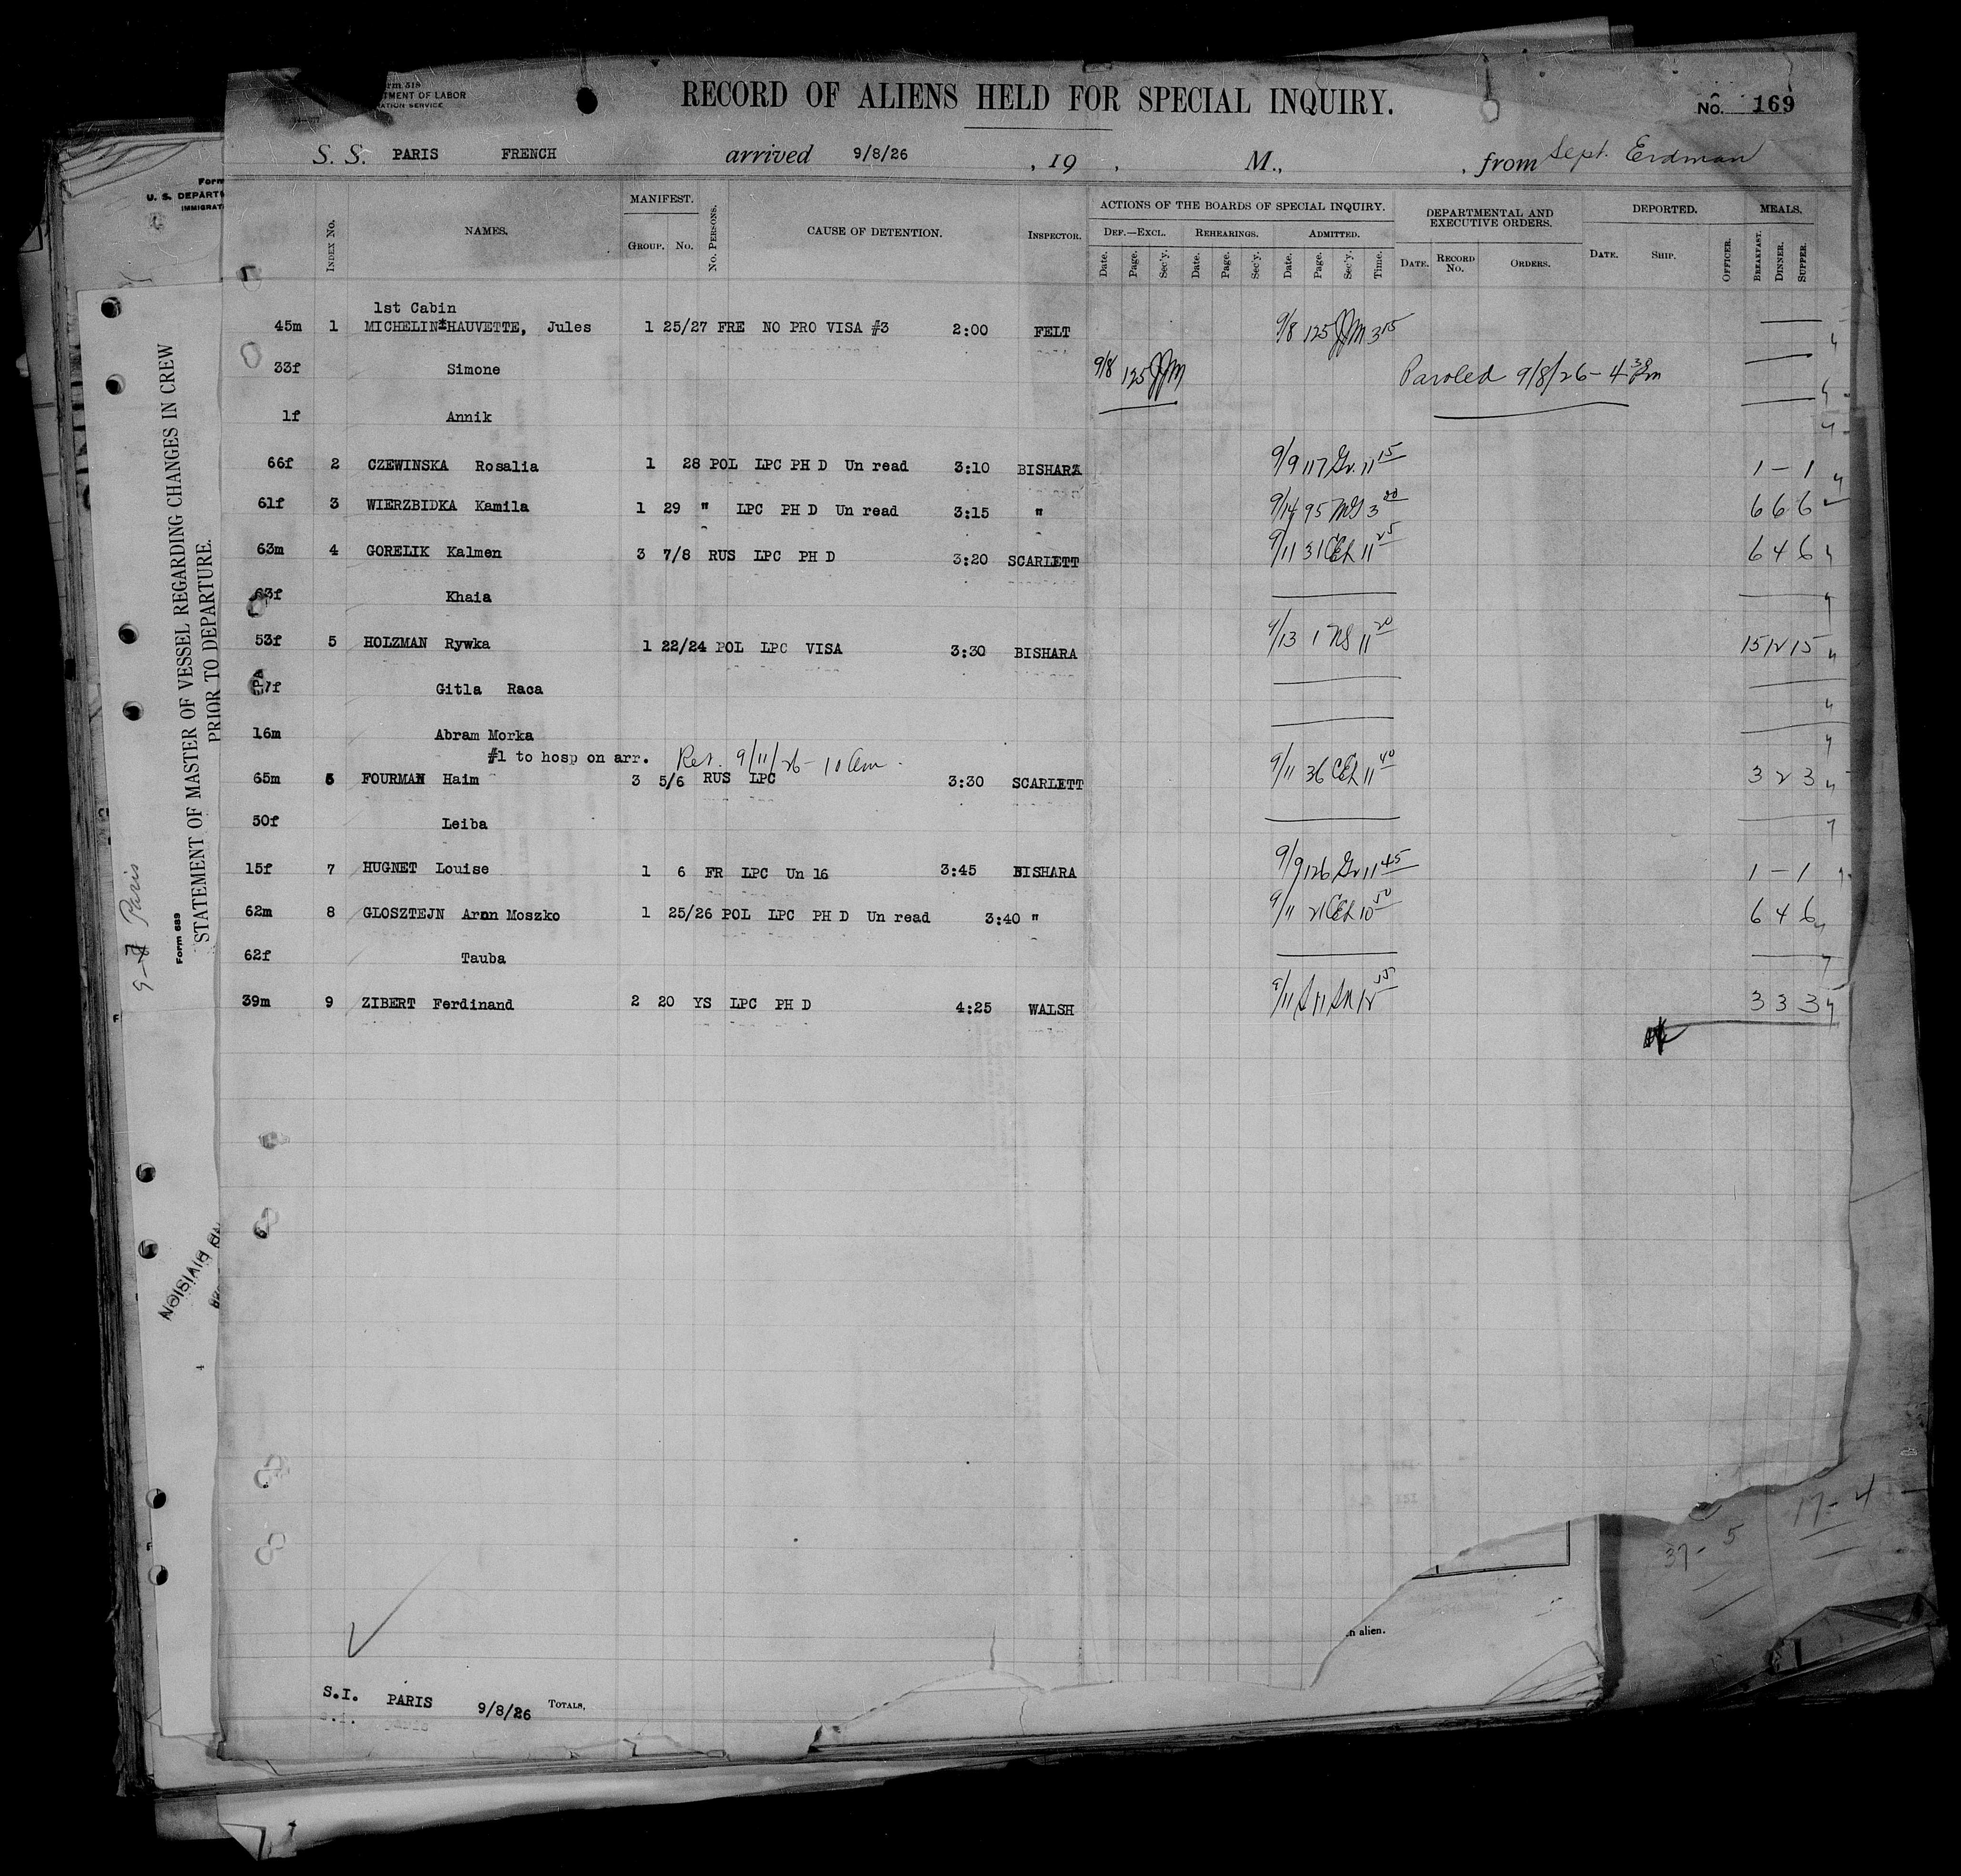 rm 518
TMENT OF LABOR
RATION SERVICE
RECORD OF ALIENS HELD FOR SPECIAL INQUIRY.
No. 169
S. S. PARIS FRENCH arrived 9/8/26 , 19 , M., , from Sept. Erdman
Form
U. S. DEPARTM
IMMIGRAT
INDEX No. NAMES. MANIFEST. GROUP. No. No. PERSONS. CAUSE OF DETENTION. INSPECTOR.
ACTIONS OF THE BOARDS OF SPECIAL INQUIRY. DEPARTMENTAL AND EXECUTIVE ORDERS. DEPORTED. MEALS.
DEF.—EXCL. REHEARINGS. ADMITTED.
Date. Page. Sec'y. Date. Page. Sec'y. Date. Page. Sec'y. Time. DATE. RECORD No. ORDERS. DATE. SHIP. OFFICER. BREAKFAST. DINNER. SUPPER.
1st Cabin
45m 1 MICHELIN*HAUVETTE, Jules 1 25/27 FRE NO PRO VISA #3 2:00 FELT 9/8 125 JJM 3 15
33f Simone 9/8 125 JJM Paroled 9/8/26 - 4 30 Pm
1f Annik
66f 2 CZEWINSKA Rosalia 1 28 POL LPC PH D Un read 3:10 BISHARA 9/9 117 Gr. 11 15 1 - 1
61f 3 WIERZBIDKA Kamila 1 29 " LPC PH D Un read 3:15 " 9/14 95 3 00 6 6 6
63m 4 GORELIK Kalmen 3 7/8 RUS LPC PH D 3:20 SCARLETT 9/11 31 CEL 11 25 6 4 6
63f Khaia
53f 5 HOLZMAN Rywka 1 22/24 POL LPC VISA 3:30 BISHARA 9/13 1 NS 11 20 15 12 15
7f Gitla Raca
16m Abram Morka
#1 to hosp on arr. Ret. 9/11/26 - 10 am.
65m 6 FOURMAN Haim 3 5/6 RUS LPC 3:30 SCARLETT 9/11 36 CEL 11 40 3 2 3
50f Leiba
15f 7 HUGNET Louise 1 6 FR LPC Un 16 3:45 BISHARA 9/9 126 Gr 11 45 1 - 1
62m 8 GLOSZTEJN Aron Moszko 1 25/26 POL LPC PH D Un read 3:40 " 9/11 21 CEL 10 50 6 4 6
62f Tauba
39m 9 ZIBERT Ferdinand 2 20 YS LPC PH D 4:25 WALSH 9/11 3 3 3
S.I. PARIS 9/8/26 TOTALS.
Form 689
STATEMENT OF MASTER OF VESSEL REGARDING CHANGES IN CREW
PRIOR TO DEPARTURE.
Paris
DIVISION
n alien.
37 - 5
17 - 4